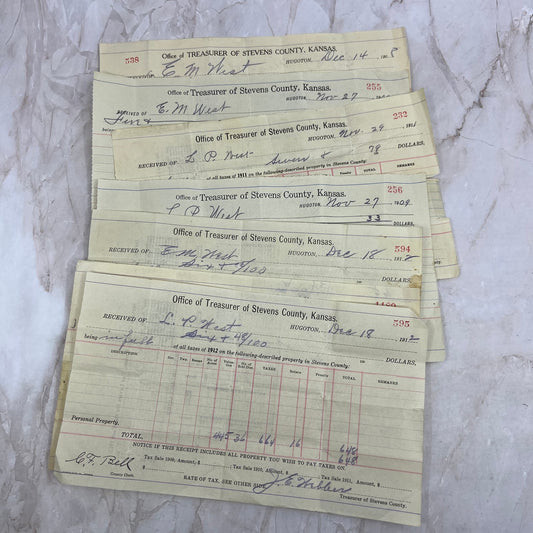 538
Office of TREASURER OF STEVENS COUNTY, KANSAS.
E. M West HUGOTON, Dec 14
Office of TREASURER of Stevens County, Kansas.
255
HUGOTON, Nov 27
RECEIVED OF E. M West
being
232
Office of Treasurer of Stevens County, Kansas.
HUGOTON, Nov. 29
RECEIVED OF L P. West Seven & 78
DOLLARS,
of all taxes of 1911 on the following-described property in Stevens County:
TOTAL REMARKS
256
Office of TREASURER of Stevens County, Kansas.
HUGOTON, Nov 27
L P. West
33 DOLLARS,
Office of Treasurer of Stevens County, Kansas.
594
HUGOTON, Dec 18 1912
RECEIVED OF E. M. West
Six + /100
DOLLARS,
Office of Treasurer of Stevens County, Kansas.
595
HUGOTON, Dec 18 1912
RECEIVED OF L. P. West
Six + 48/100 DOLLARS,
being in full of all taxes of 1912 on the following-described property in Stevens County:
DESCRIPTION Sec. Twp. Range No. of Acres TAXES Interest Penalty TOTAL REMARKS
Personal Property.
TOTAL, 445 36 664 16 648
NOTICE IF THIS RECEIPT INCLUDES ALL PROPERTY YOU WISH TO PAY TAXES ON. 648
C. F. Bell
County Clerk.
Tax Sale 1909, Amount, $ Tax Sale 1910, Amount, $ Tax Sale 1911, Amount, $
RATE OF TAX, SEE OTHER SIDE.
Treasurer of Stevens County.